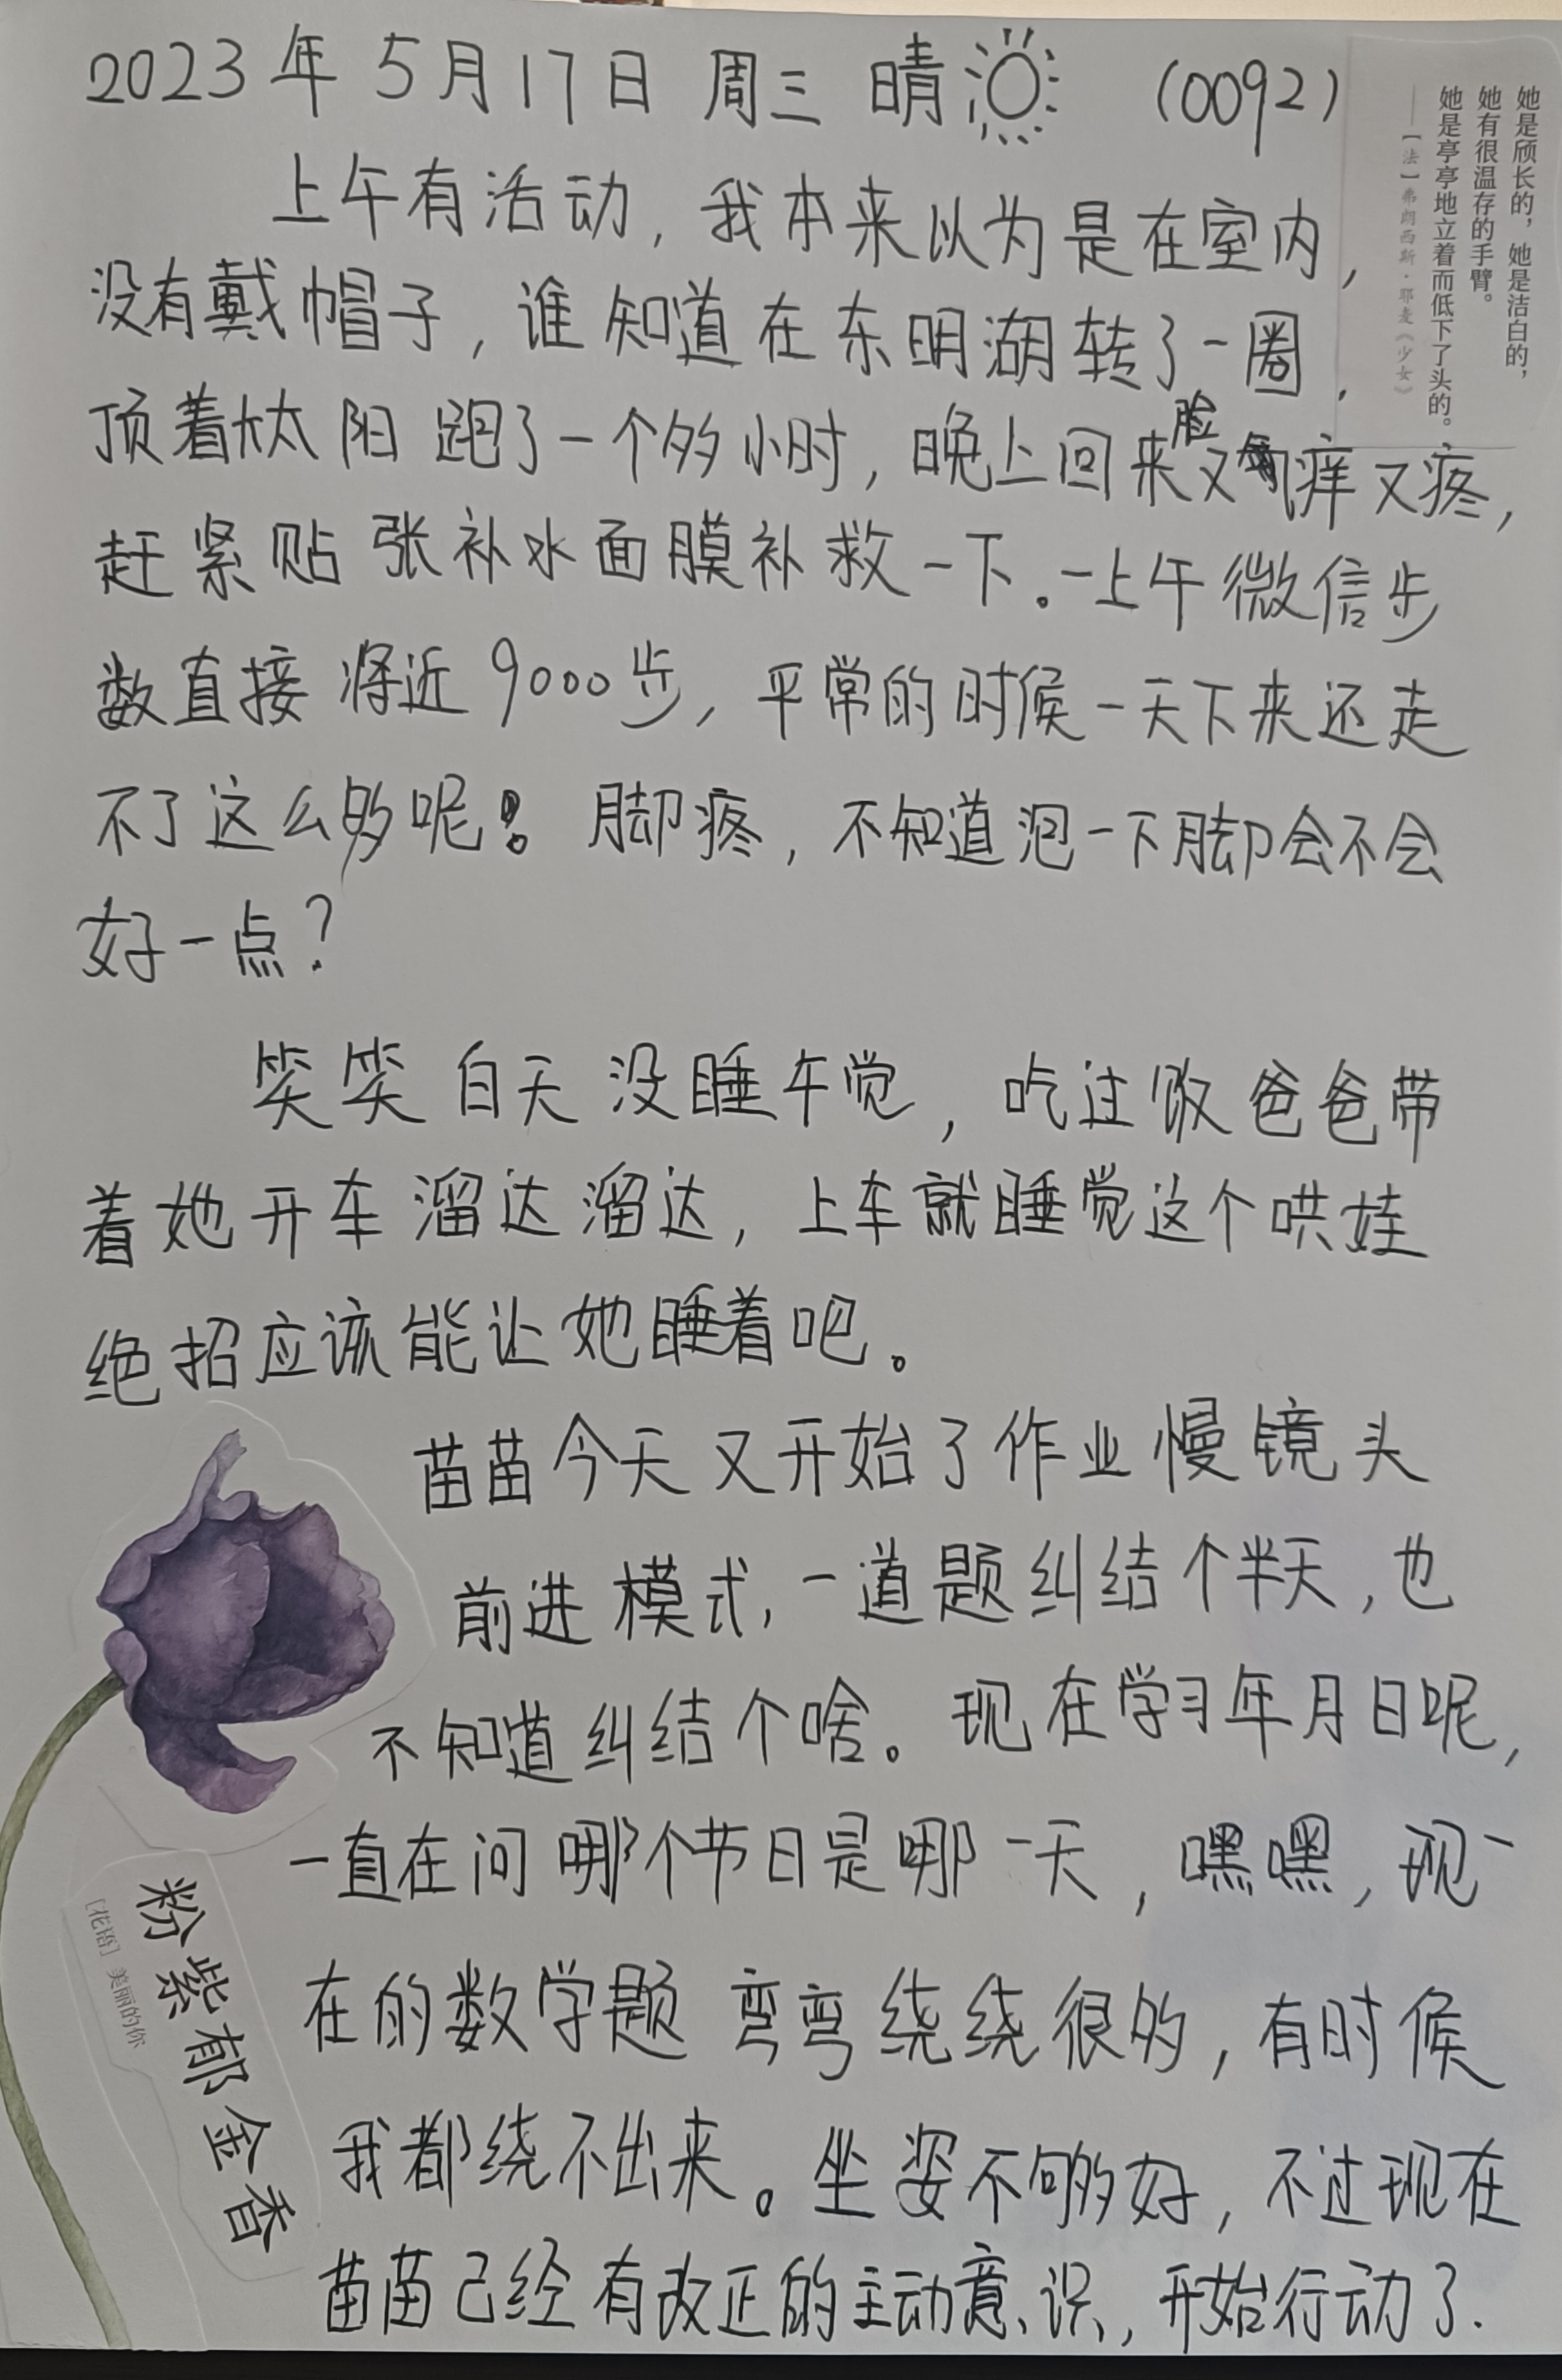 2023年5月17日 周三 晴 (0092)
她是颀长的，她是洁白的，
她有很温存的手臂。
她是亭亭地立着而低下了头的。
——［法］弗朗西斯·耶麦《少女》
上午有活动，我本来以为是在室内，
没有戴帽子，谁知道在东明湖转了一圈，
顶着太阳跑了一个多小时，晚上回来脸又痒又疼，
赶紧贴张补水面膜补救一下。一上午微信步
数直接将近9000步，平常的时候一天下来还走
不了这么多呢！脚疼，不知道泡一下脚会不会
好一点？
笑笑白天没睡午觉，吃过饭爸爸带
着她开车溜达溜达，上车就睡觉这个哄娃
绝招应该能让她睡着吧。
苗苗今天又开始了作业慢镜头
前进模式，一道题纠结个半天，也
不知道纠结个啥。现在学习年月日呢，
一直在问哪个节日是哪一天，嘿嘿，现
在的数学题弯弯绕绕很多，有时候
我都绕不出来。坐姿不够好，不过现在
苗苗已经有改正的主动意识，开始行动了.
粉紫郁金香
［花语］美丽的你